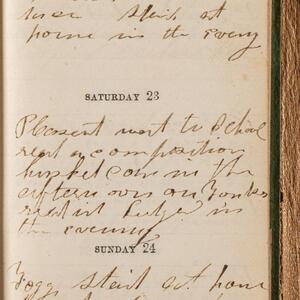 staid at
home in the eveng
SATURDAY 23
Pleasent went to School
read a composition
husked corn in the
afternoon on
read in Ledger in
the evening
SUNDAY 24
Foggy staid at home